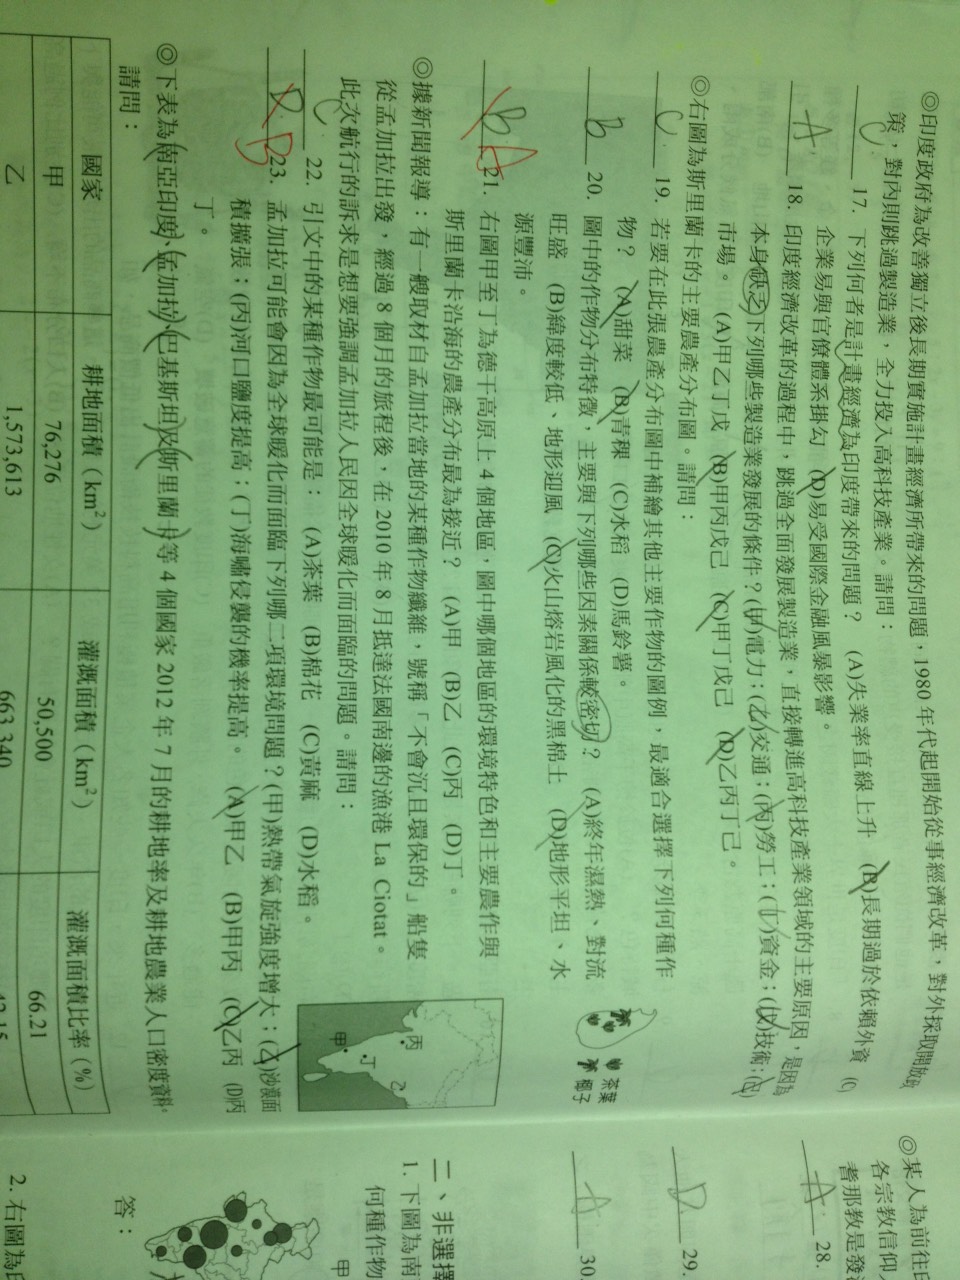 ◎印度政府為改善獨立後長期實施計畫經濟所帶來的問題，1980年代起開始從事經濟改革，對外採取開放政
策，對內則跳過製造業，全力投入高科技產業。請問：
C 17. 下列何者是計畫經濟為印度帶來的問題？ (A)失業率直線上升 (B)長期過於依賴外資 (C)
企業易與官僚體系掛勾 (D)易受國際金融風暴影響。
A 18. 印度經濟改革的過程中，跳過全面發展製造業，直接轉進高科技產業領域的主要原因，是因為
本身缺乏下列哪些製造業發展的條件？(甲)電力；(乙)交通；(丙)勞工；(丁)資金；(戊)技術；(己)
市場。 (A)甲乙丁戊 (B)甲丙戊己 (C)甲丁戊己 (D)乙丙丁己。
◎右圖為斯里蘭卡的主要農產分布圖。請問：
C 19. 若要在此張農產分布圖中補繪其他主要作物的圖例，最適合選擇下列何種作
物？ (A)甜菜 (B)青稞 (C)水稻 (D)馬鈴薯。
B 20. 圖中的作物分布特徵，主要與下列哪些因素關係較密切？ (A)終年濕熱、對流
旺盛 (B)緯度較低、地形迎風 (C)火山熔岩風化的黑棉土 (D)地形平坦、水
源豐沛。
茶葉
椰子
B A 21. 右圖甲至丁為德干高原上4個地區，圖中哪個地區的環境特色和主要農作與
斯里蘭卡沿海的農產分布最為接近？ (A)甲 (B)乙 (C)丙 (D)丁。
丙
乙
丁
甲
◎據新聞報導：有一艘取材自孟加拉當地的某種作物纖維，號稱「不會沉且環保的」船隻
從孟加拉出發，經過8個月的旅程後，在2010年8月抵達法國南邊的漁港 La Ciotat。
此次航行的訴求是想要強調孟加拉人民因全球暖化而面臨的問題。請問：
C 22. 引文中的某種作物最可能是： (A)茶葉 (B)棉花 (C)黃麻 (D)水稻。
D B 23. 孟加拉可能會因為全球暖化而面臨下列哪二項環境問題？(甲)熱帶氣旋強度增大；(乙)沙漠面
積擴張；(丙)河口鹽度提高；(丁)海嘯侵襲的機率提高。 (A)甲乙 (B)甲丙 (C)乙丙 (D)丙
丁。
◎下表為南亞印度、孟加拉、巴基斯坦及斯里蘭卡等4個國家2012年7月的耕地率及耕地農業人口密度資料
請問：
國家 耕地面積（km²） 灌溉面積（km²） 灌溉面積比率（%）
甲 76,276 50,500 66.21
乙 1,573,613 663,340 42.15
◎某人為前往
各宗教信仰
耆那教是發
A 28.
D 29.
A 30.
二、非選擇
1. 下圖為南
何種作物
甲
答：
2. 右圖為